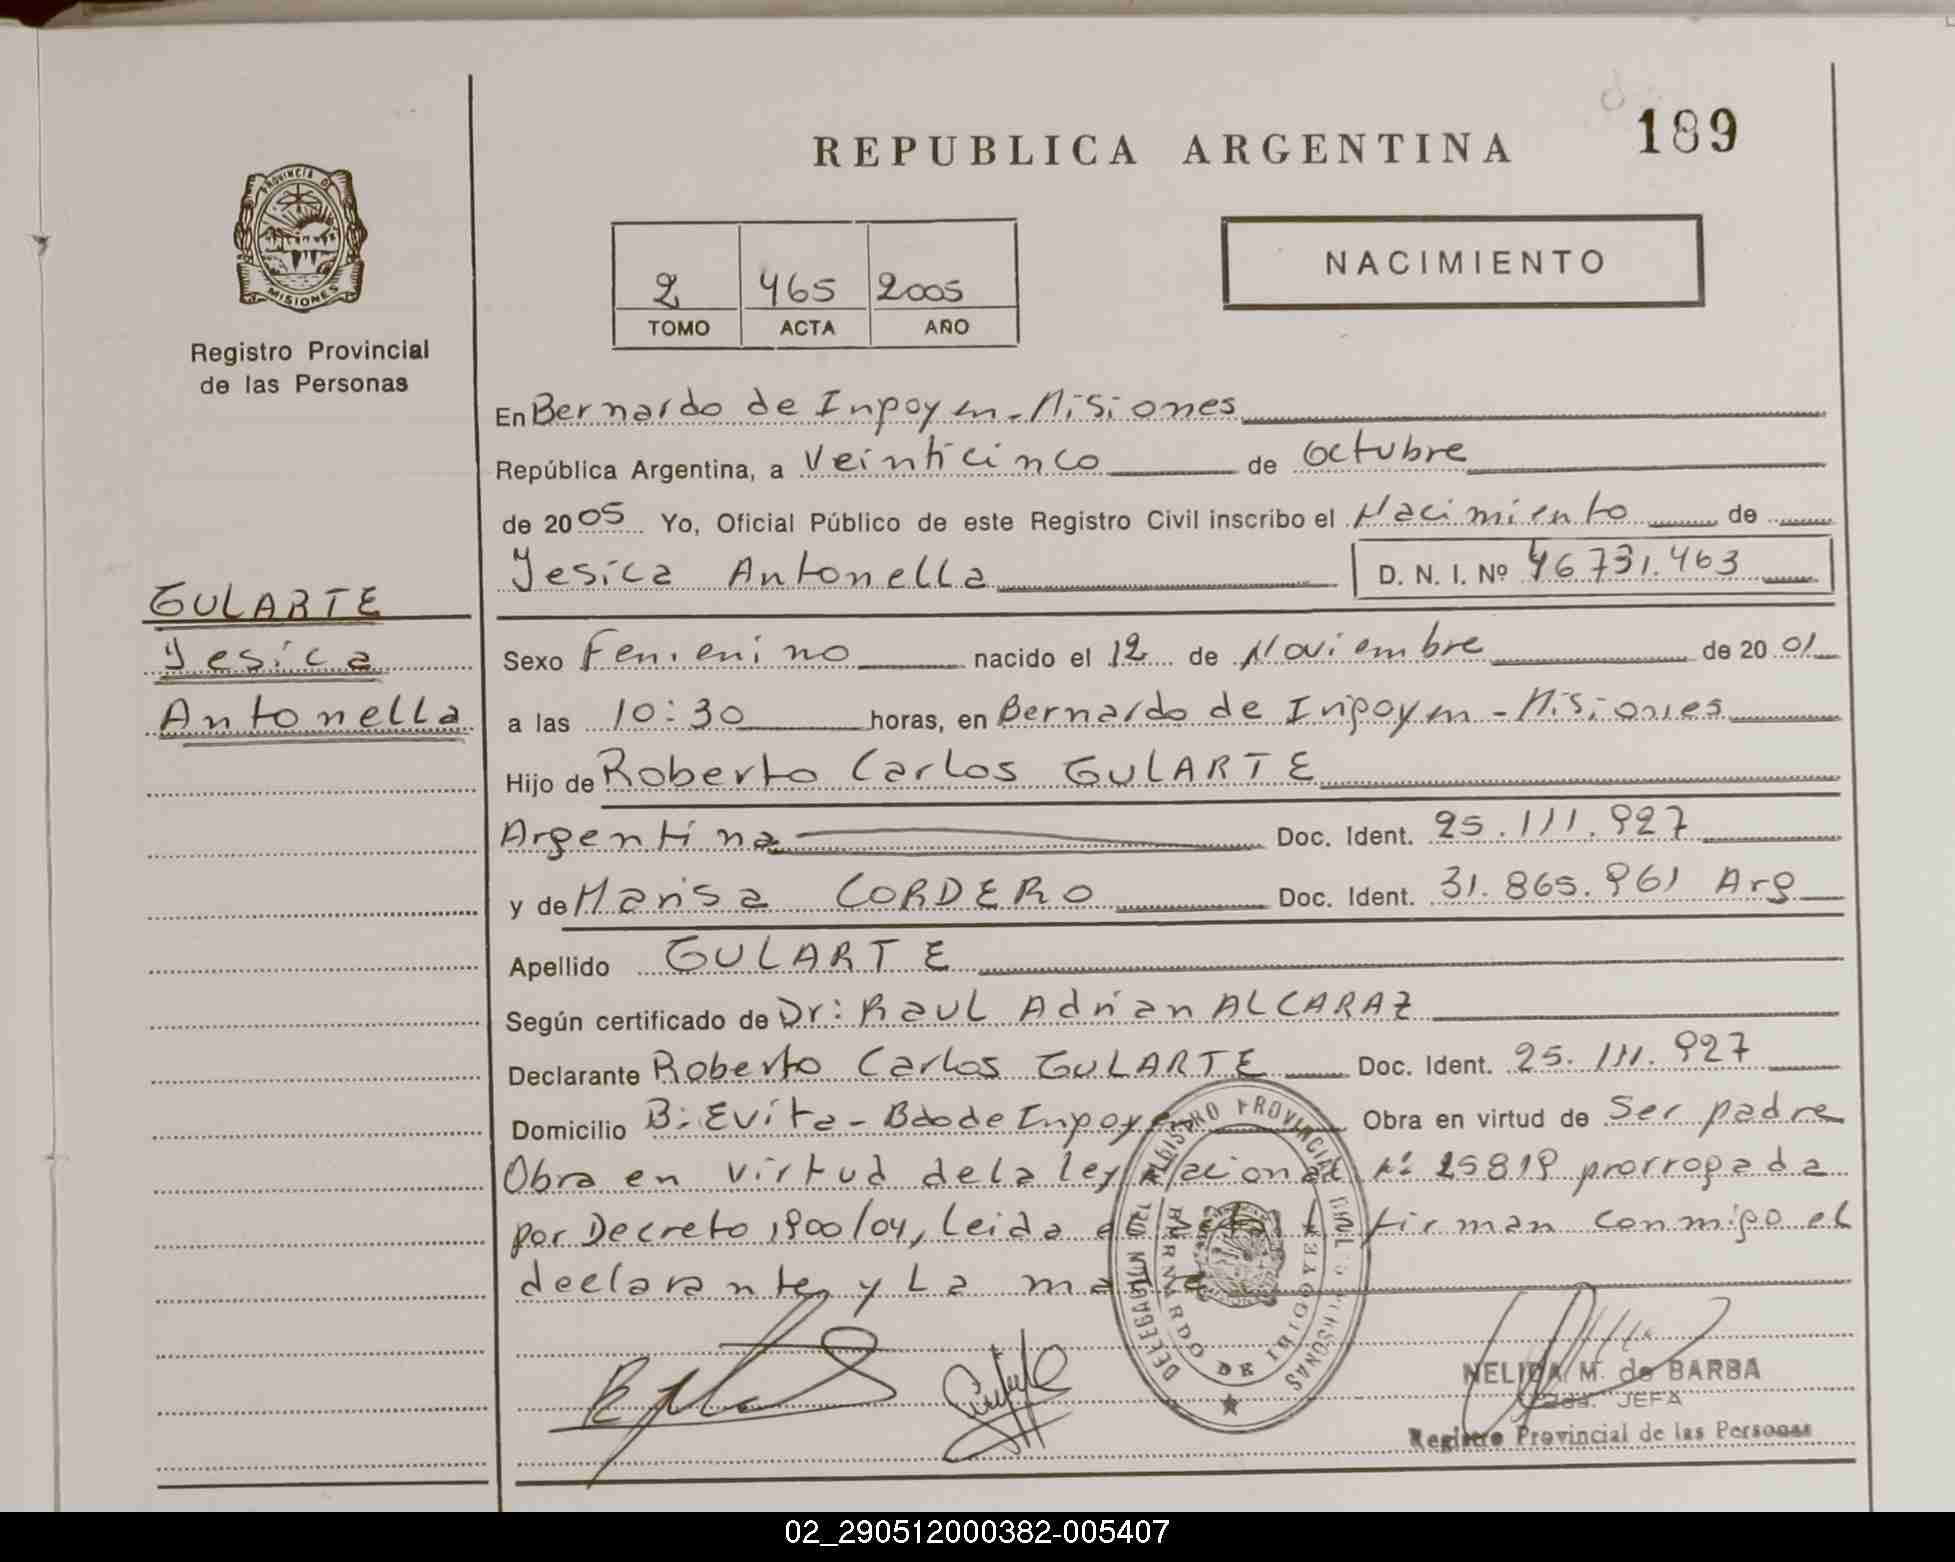 REPUBLICA ARGENTINA
189
PROVINCIA DE
MISIONES
Registro Provincial
de las Personas
2 465 2005
TOMO ACTA AÑO
NACIMIENTO
En Bernardo de Irigoyen - Misiones
República Argentina, a Veinticinco de Octubre
de 2005 Yo, Oficial Público de este Registro Civil inscribo el Nacimiento de
Yesica Antonella D. N. I. Nº 46.731.463
GULARTE
Yesica
Antonella
Sexo Femenino nacido el 12 de Noviembre de 2001
a las 10:30 horas, en Bernardo de Irigoyen - Misiones
Hijo de Roberto Carlos GULARTE
Argentina Doc. Ident. 25.111.927
y de Marisa CORDERO Doc. Ident. 31.865.961 Arg
Apellido GULARTE
Según certificado de Dr: Raul Adrian ALCARAZ
Declarante Roberto Carlos GULARTE Doc. Ident. 25.111.927
Domicilio B: Evita - Bdo de Irigoyen Obra en virtud de Ser padre
Obra en virtud de la ley Nacional Nº 25819 prorrogada
por Decreto 1900/04, Leida el Acta firman conmigo el
declarante, y La madre
REGISTRO PROVINCIAL DE LAS PERSONAS
DELEGACION
BERNARDO DE IRIGOYEN
NELIDA M. de BARBA
JEFA
Registro Provincial de las Personas
02_290512000382-005407